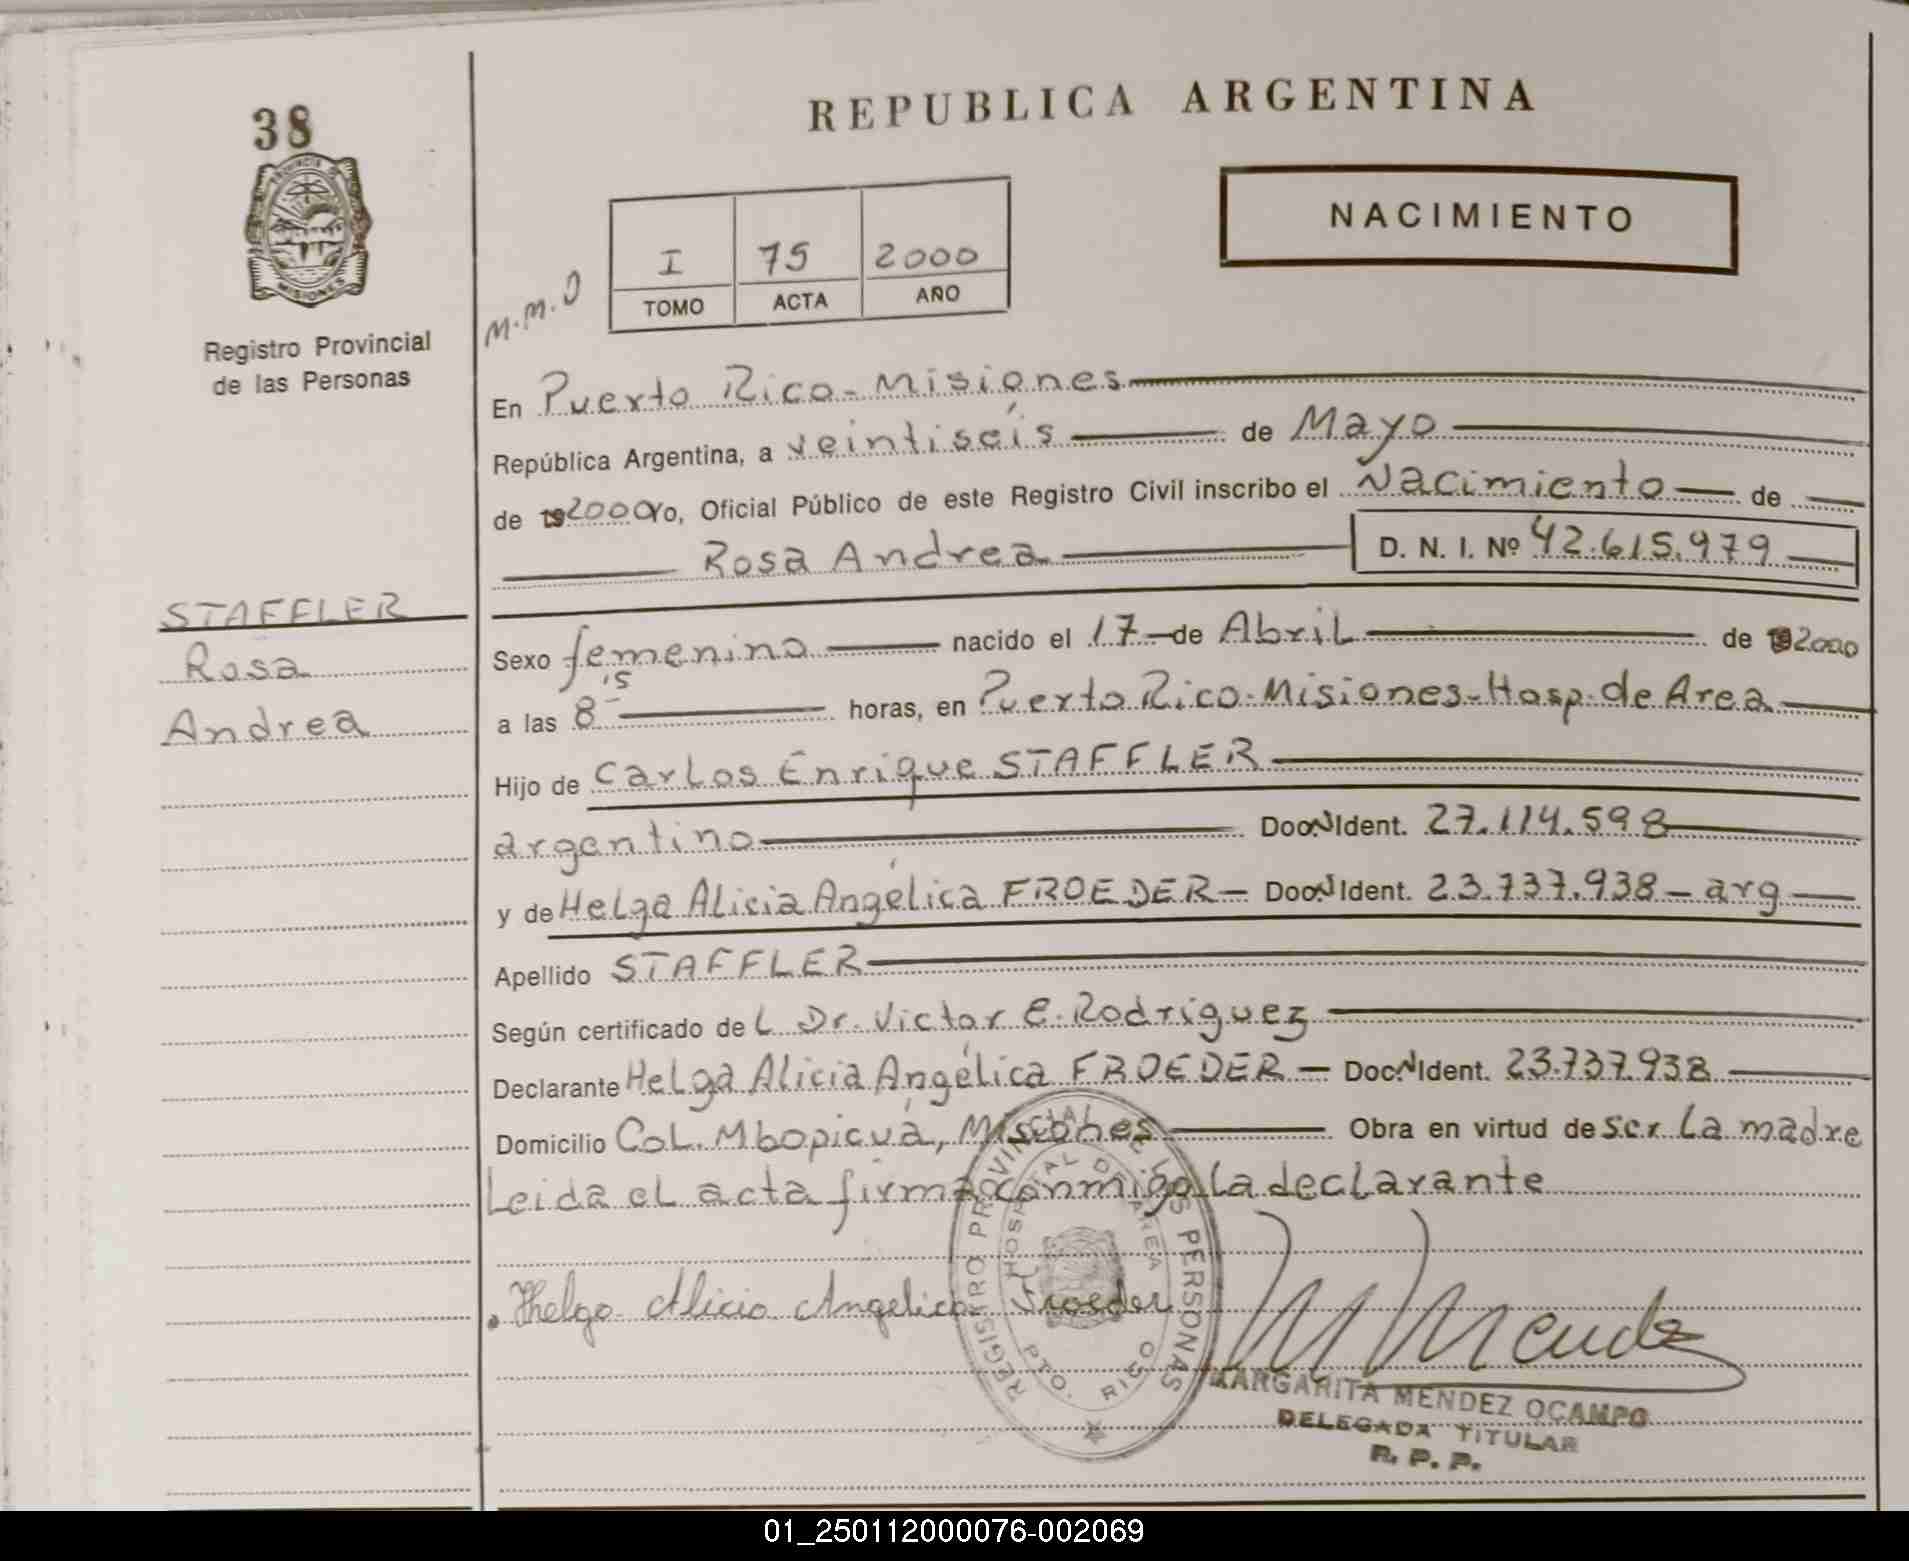 38
REPUBLICA ARGENTINA
PROVINCIA DE
MISIONES
Registro Provincial
de las Personas
NACIMIENTO
M.M.O
I 75 2000
TOMO ACTA AÑO
En Puerto Rico - Misiones
República Argentina, a veintiséis de Mayo
de 192000 Yo, Oficial Público de este Registro Civil inscribo el Nacimiento de
Rosa Andrea D. N. I. Nº 42.615.979
STAFFLER
Rosa
Andrea
Sexo femenino nacido el 17 de Abril de 192000
a las 8 15 horas, en Puerto Rico - Misiones - Hosp. de Area
Hijo de Carlos Enrique STAFFLER
argentino Doc. N Ident. 27.114.598
y de Helga Alicia Angélica FROEDER - Doc. N Ident. 23.737.938 - arg
Apellido STAFFLER
Según certificado de L Dr. Victor E. Rodríguez
Declarante Helga Alicia Angélica FROEDER - Doc. N Ident. 23.737.938
Domicilio Col. Mbopicuá, Misiones Obra en virtud de ser la madre
Leida el acta firma conmigo la declarante
Helga Alicia Angelica Froeder
REGISTRO PROVINCIAL DE LAS PERSONAS
HOSPITAL DE AREA
PTO. RICO
M Mendez
MARGARITA MENDEZ OCAMPO
DELEGADA TITULAR
R. P. P.
01_250112000076-002069